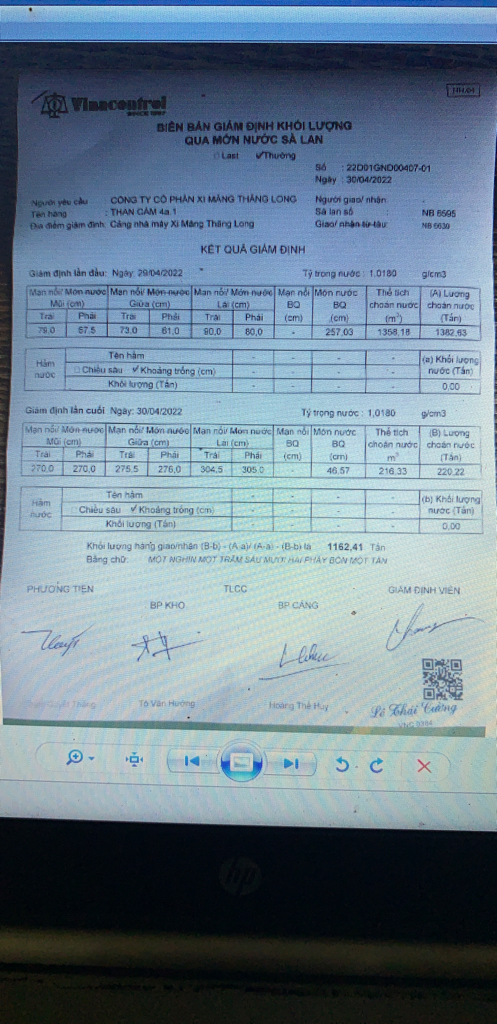 HH.01
Vinacontrol
SINCE 1957
BIÊN BẢN GIÁM ĐỊNH KHỐI LƯỢNG
QUA MỚN NƯỚC SÀ LAN
Last ✓Thường
Số : 22D01GND00407-01
Ngày : 30/04/2022
Người yêu cầu : CÔNG TY CỔ PHẦN XI MĂNG THĂNG LONG Người giao/ nhận : -
Tên hàng : THAN CÁM 4a.1 Sà lan số : NB 6595
Địa điểm giám định: Cảng nhà máy Xi Măng Thăng Long Giao/ nhận từ tàu: NB 6630
KẾT QUẢ GIÁM ĐỊNH
Giám định lần đầu: Ngày: 29/04/2022 Tỷ trọng nước : 1,0180 g/cm3
Mạn nổi/ Món nước Mạn nổi/ Món nước Mạn nổi/ Món nước Mạn nổi Món nước Thể tích (A) Lượng
Mũi (cm) Giữa (cm) Lái (cm) BQ BQ choán nước choán nước
Trái Phải Trái Phải Trái Phải (cm) (cm) (m³) (Tấn)
79,0 67,5 73,0 61,0 90,0 80,0 - 257,03 1358,18 1382,63
Hầm nước Tên hầm - - - (a) Khối lượng
Chiều sâu ✓ Khoảng trống (cm) - - - nước (Tấn)
Khối lượng (Tấn) - - - 0,00
Giám định lần cuối Ngày: 30/04/2022 Tỷ trọng nước : 1,0180 g/cm3
Mạn nổi/ Món nước Mạn nổi/ Món nước Mạn nổi/ Món nước Mạn nổi Món nước Thể tích (B) Lượng
Mũi (cm) Giữa (cm) Lái (cm) BQ BQ choán nước choán nước
Trái Phải Trái Phải Trái Phải (cm) (cm) m³ (Tấn)
270,0 270,0 275,5 276,0 304,5 305,0 - 46,57 216,33 220,22
Hầm nước Tên hầm - - - (b) Khối lượng
Chiều sâu ✓ Khoảng trống (cm) - - - nước (Tấn)
Khối lượng (Tấn) - - - 0,00
Khối lượng hàng giao/nhận (B-b) - (A-a)/ (A-a) - (B-b) là 1162,41 Tấn
Bằng chữ: MỘT NGHÌN MỘT TRĂM SÁU MƯƠI HAI PHẨY BỐN MỘT TẤN
PHƯƠNG TIỆN TLCC GIÁM ĐỊNH VIÊN
BP KHO BP CẢNG
Thắng Tô Văn Hướng Hoàng Thế Huy Lê Thái Cường
VNC 0394
hp